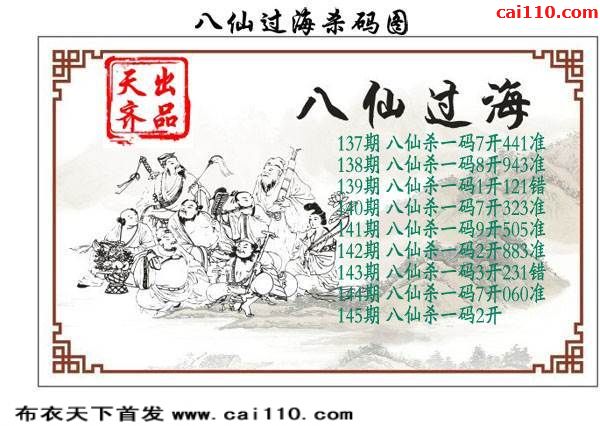 八仙过海杀码图
cai110.com
天出
齐品
八仙过海
137期 八仙杀一码7开441准
138期 八仙杀一码8开943准
139期 八仙杀一码1开121错
140期 八仙杀一码7开323准
141期 八仙杀一码9开505准
142期 八仙杀一码2开883准
143期 八仙杀一码3开231错
144期 八仙杀一码7开060准
145期 八仙杀一码2开
布衣天下首发 www.cai110.com